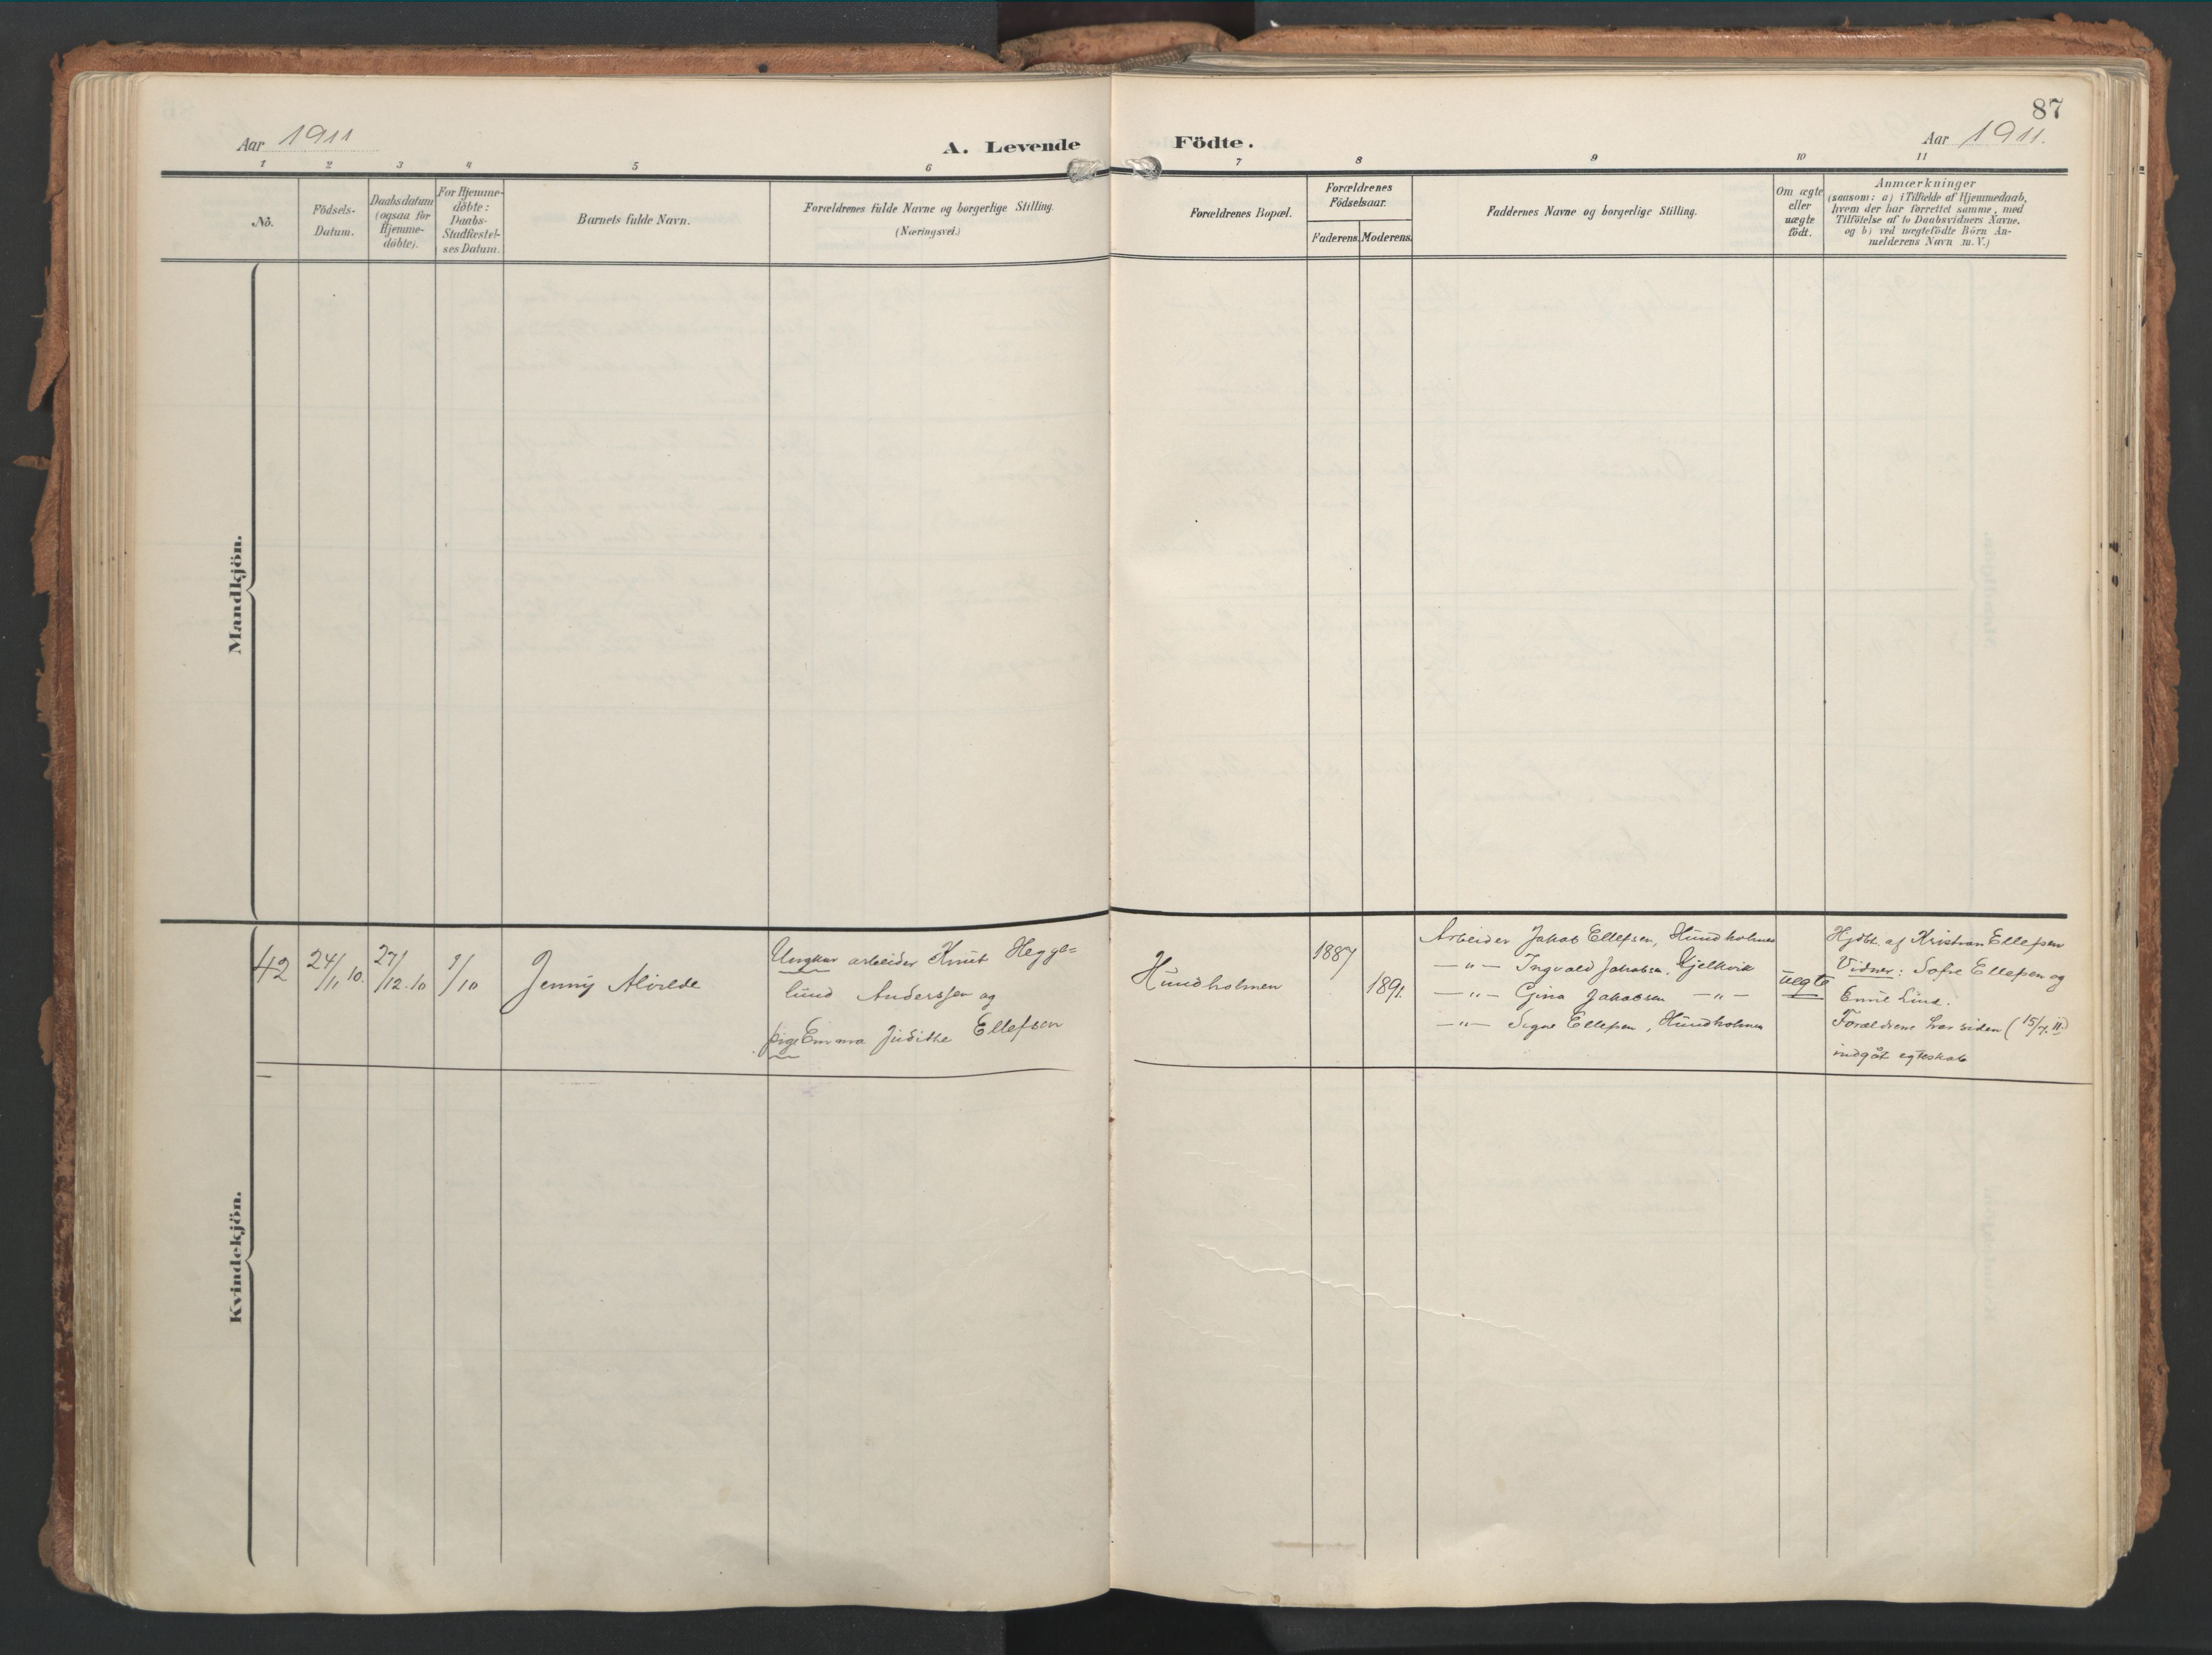 87
Aar 1911
A. Levende Födte.
Aar 1911.
1 2 3 4 5 6 7 8 9 10 11
No.
Födsels-
Datum.
Daabsdatum
(ogsaa for
Hjemme-
döbte).
For Hjemme-
döbte:
Daabs-
Stadfæstel-
ses Datum.
Barnets fulde Navn.
Forældrenes fulde Navne og borgerlige Stilling.
(Næringsvei.)
Forældrenes Bopæl.
Forældrenes
Födselsaar.
Faderens. Moderens.
Faddernes Navne og borgerlige Stilling.
Om ægte
eller
uægte
födt.
Anmærkninger
(saasom: a) i Tilfælde af Hjemmedaab,
hvem der har forrettet samme, med
Tilföielse af to Daabsvidners Navne,
og b) ved uægtefödte Börn An-
melderens Navn m. V.)
Mandkjön.
Kvindekjön.
42
24/11 10.
27/12.10
1/10
Jenny Alvilde
Ungkar arbeider Knut Hegge=
lund Anderssen og
pige Emma Judithe Ellefsen
Hundholmen
1887
1891.
Arbeider Jakob Ellefsen, Hundholmen
—"— Ingvald Jakobsen, Kjelkvik
—"— Gina Jakobsen —"—
—"— Signe Ellefsen, Hundholmen
uegte
Hjdbt. af Kristian Ellefsen
Vidner: Sofie Ellefsen og
Emil Lind.
Forældrene har siden (15/7.11)
indgåt egteskab